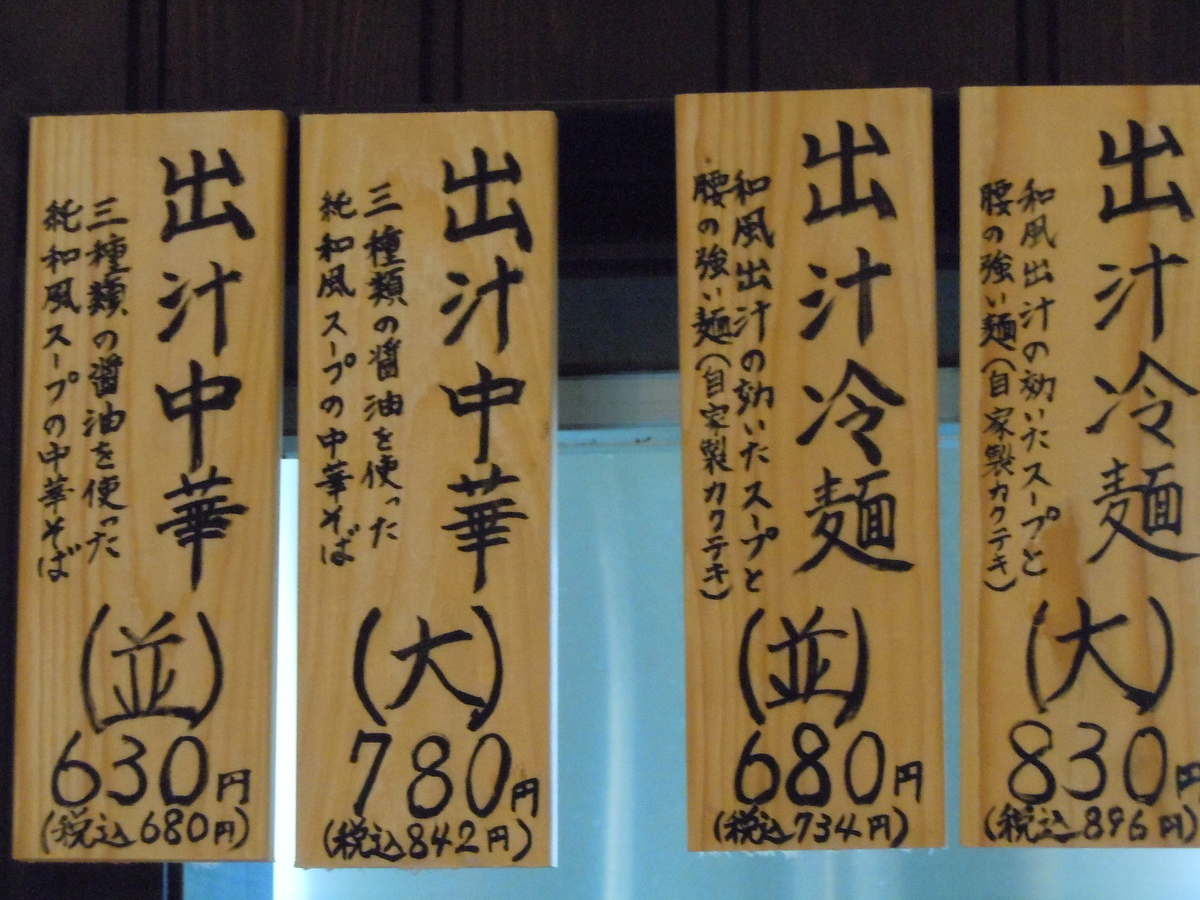 出汁中華
三種類の醤油を使った
純和風スープの中華そば
(並)
630円
(税込680円)
出汁中華
三種類の醤油を使った
純和風スープの中華そば
(大)
780円
(税込842円)
出汁冷麺
和風出汁の効いたスープと
腰の強い麺(自家製カクテキ)
(並)
680円
(税込734円)
出汁冷麺
和風出汁の効いたスープと
腰の強い麺(自家製カクテキ)
(大)
830円
(税込896円)